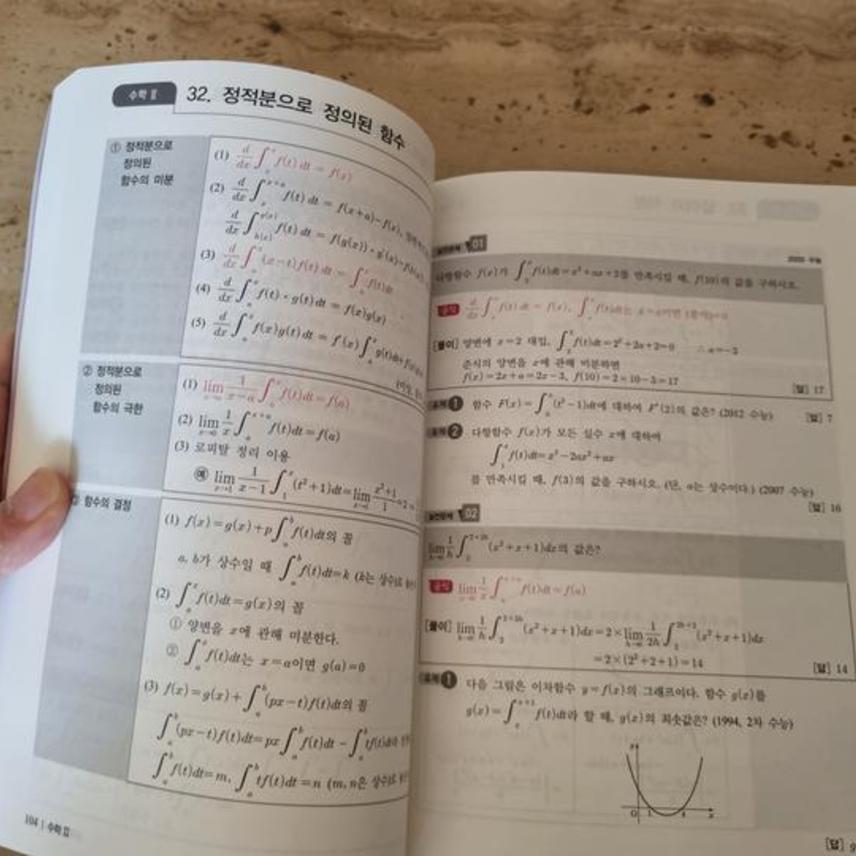 수학 Ⅱ
32. 정적분으로 정의된 함수
① 정적분으로
정의된
함수의 미분
(1) d/dx ∫_a^x f(t) dt = f(x)
(2) d/dx ∫_x^{x+a} f(t) dt = f(x+a)-f(x),
d/dx ∫_{h(x)}^{g(x)} f(t) dt = f(g(x))·g'(x)-f(h(x))
(3) d/dx ∫_a^x (x-t)f(t) dt = ∫_a^x f(t)dt
(4) d/dx ∫_a^x f(t)·g(t) dt = f(x)g(x)
(5) d/dx ∫_a^x f(x)g(t) dt = f'(x) ∫_a^x g(t)dt+
② 정적분으로
정의된
함수의 극한
(1) lim_{x→a} 1/(x-a) ∫_a^x f(t)dt=f(a)
(2) lim_{x→0} 1/x ∫_a^{x+a} f(t)dt=f(a)
(3) 로피탈 정리 이용
예 lim_{x→1} 1/(x-1) ∫_1^x (t²+1)dt=lim_{x→1} (x²+1)/1=2
③ 함수의 결정
(1) f(x)=g(x)+p∫_a^b f(t)dt의 꼴
a, b가 상수일 때 ∫_a^b f(t)dt=k (k는 상수)로
(2) ∫_a^x f(t)dt=g(x)의 꼴
① 양변을 x에 관해 미분한다.
② ∫_a^x f(t)dt는 x=a이면 g(a)=0
(3) f(x)=g(x)+∫_a^b (px-t)f(t)dt의 꼴
∫_a^b (px-t)f(t)dt=px∫_a^b f(t)dt-∫_a^b tf(t)dt
∫_a^b f(t)dt=m, ∫_a^b tf(t)dt=n (m, n은 상수)로
104 | 수학 Ⅱ
실전문제 01
다항함수 f(x)가 ∫_2^x f(t)dt=x²+ax+2를 만족시킬 때, f(10)의 값을 구하시오.
공식 d/dx ∫_a^x f(t) dt = f(x), ∫_a^x f(t)dt는 x=a이면
[풀이] 양변에 x=2 대입, ∫_2^2 f(t)dt=2²+2a+2=0 ∴ a=-3
준식의 양변을 x에 관해 미분하면
f(x)=2x+a=2x-3, f(10)=2×10-3=17
[답] 17
유제 1 함수 F(x)=∫_0^x (t³-1)dt에 대하여 F'(2)의 값은? (2012 수능)
[답] 7
유제 2 다항함수 f(x)가 모든 실수 x에 대하여
∫_1^x f(t)dt=x³-2ax²+ax
를 만족시킬 때, f(3)의 값을 구하시오. (단, a는 상수이다.) (2007 수능)
[답] 16
실전문제 02
lim_{h→0} 1/h ∫_2^{2+2h} (x²+x+1)dx의 값은?
공식 lim_{x→0} 1/x ∫_a^{x+a} f(t)dt=f(a)
[풀이] lim_{h→0} 1/h ∫_2^{2+2h} (x²+x+1)dx=2×lim_{h→0} 1/2h ∫_2^{2h+2} (x²+x+1)dx
=2×(2²+2+1)=14
[답] 14
유제 1 다음 그림은 이차함수 y=f(x)의 그래프이다. 함수 g(x)를
g(x)=∫_x^{x+1} f(t)dt라 할 때, g(x)의 최솟값은? (1994, 2차 수능)
y
O 1 4 x
[답] g